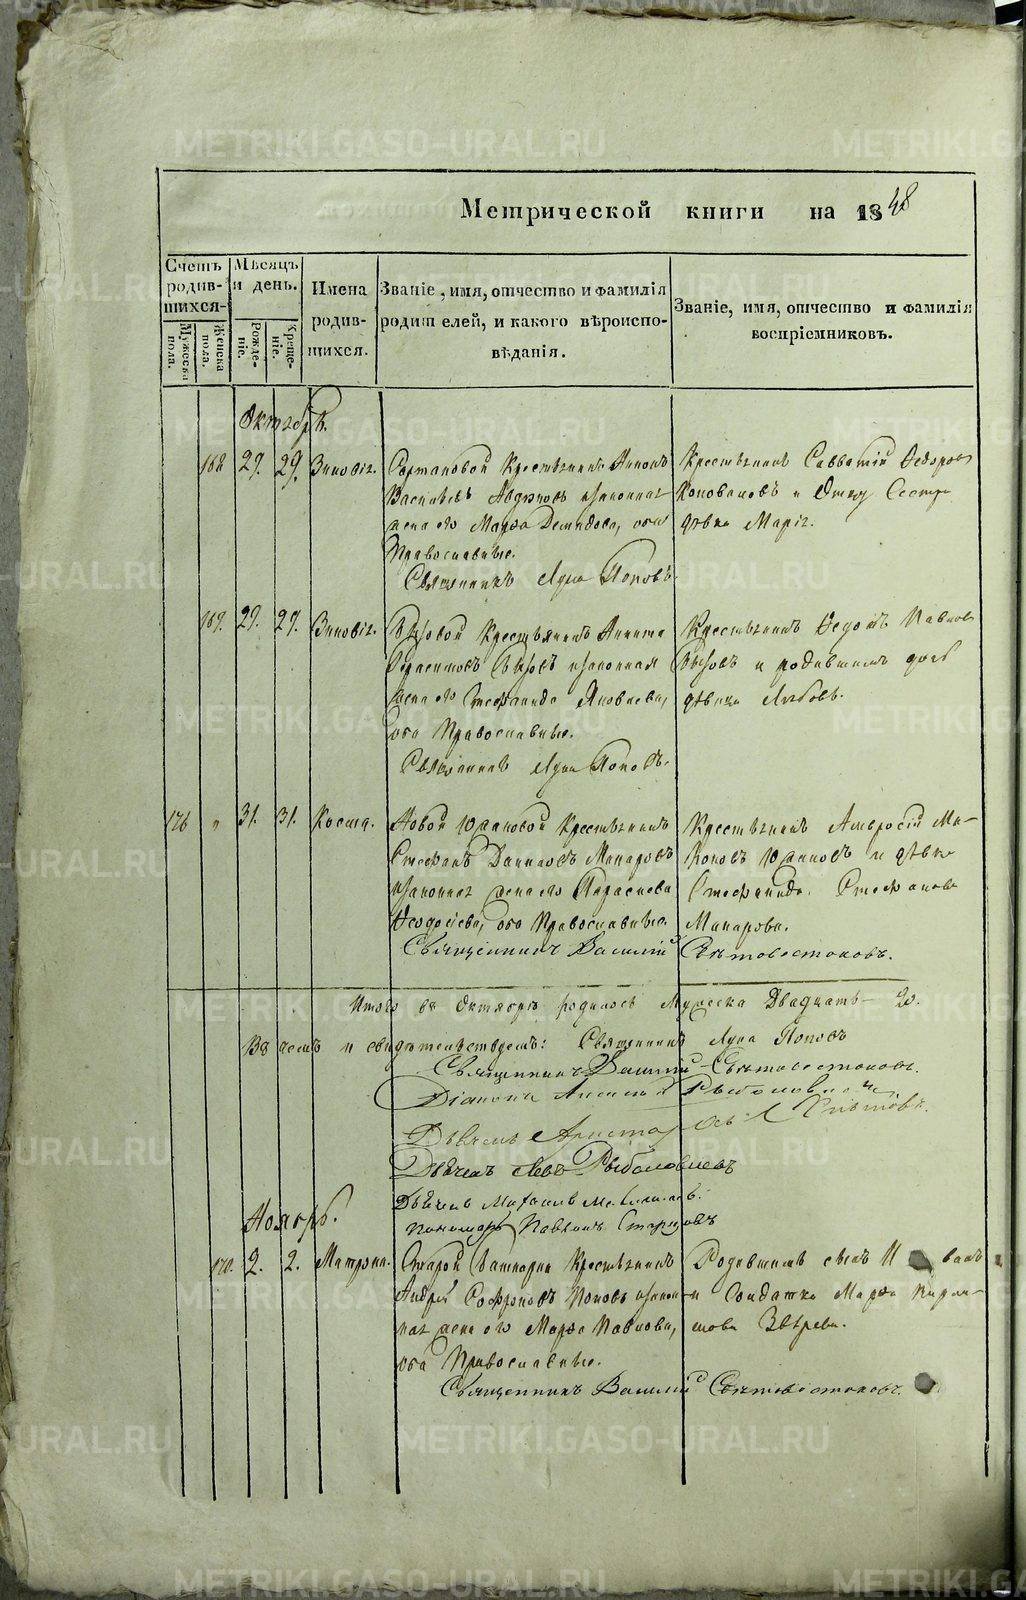 Метрической книги на 1848
Счетъ родив-шихся
Мужеска пола.
Женска пола.
Мѣсяцъ и день.
Рожде-ніе.
Креще-ніе.
Имена родив-шихся.
Званіе, имя, отчество и фамилія
родителей, и какого вѣроиспо-
вѣданія.
Званіе, имя, отчество и фамилія
воспріемниковъ.
Октябрь.
168 29. 29. Зиновія.
Крестьянинъ
жена его Марѳа Демидова, оба
Православные.
Священникъ Лука Поповъ.
Крестьянинъ Савватій Ѳедоровъ
Коноваловъ и
дѣвка Марія.
169. 29. 29. Зиновія.
Крестьянинъ Никита
законная
жена его Стефанида Яковлева,
оба Православные.
Священникъ Лука Поповъ.
Крестьянинъ Ѳедотъ Павловъ
и родившимъ дочь
дѣвица Любовь.
176 " 31. 31. Косма.
Новой Юлановой Крестьянинъ
Стефанъ Даниловъ Макаровъ
законная жена его Параскева
Ѳеодосіева, оба Православные.
Священникъ Василій Свѣтовостоковъ.
Крестьянинъ Амвросій Ма-
каровъ Юлановъ и дѣвка
Стефанида Стефанова
Макарова.
Итого въ Октябрѣ родилось Мужеска Двадцать - 20.
Въ чемъ и свидѣтельствуемъ: Священникъ Лука Поповъ
Священникъ Василій Свѣтовостоковъ.
Діаконъ Алексій Рыболовлевъ
Дьячекъ Аристархъ
Дьячекъ Левъ Рыболовлевъ
Дьячекъ Михаилъ
Пономарь Павлинъ Старцовъ
Ноябрь.
170. 2. 2. Матрона.
Старой Крестьянинъ
Андрей Софроновъ Поповъ закон-
ная жена его Марѳа Павлова,
оба Православные.
Священникъ Василій Свѣтовостоковъ.
Родившимъ сынъ
и Солдатка Марѳа Кирил-
лова Звѣрева.
METRIKI.GASO-URAL.RU